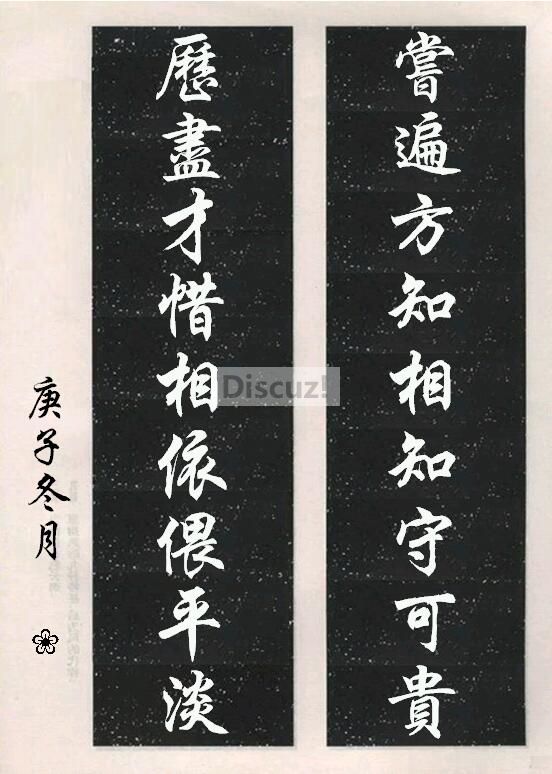 嘗遍方知相知守可貴
歷盡才惜相依偎平淡
庚子冬月
Discuz!